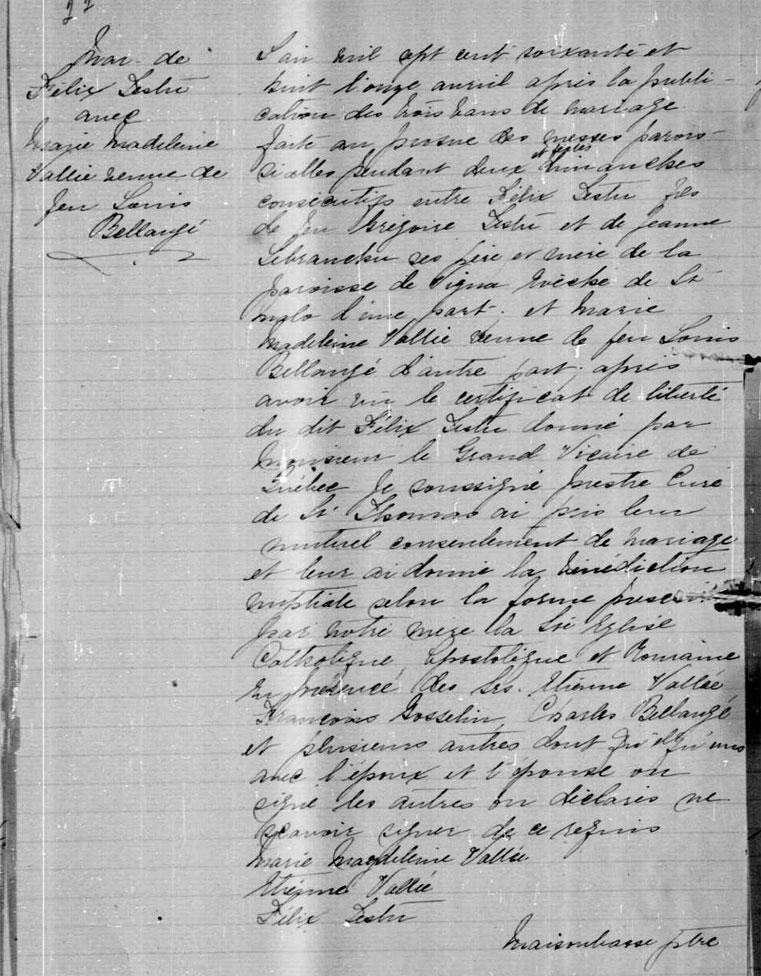 Mar. de
Félix Lestu
avec
Marie Madeleine
Vallée veuve de
feu Louis
Bellangé
L'an mil sept cent soixante et
huit l'onze avril après la publi-
cation des trois bans de mariage
faite au prosne des messes parois-
sialles pendant deux dimanches
et festes
consécutifs entre Félix Lestu fils
de feu Grégoire Lestu et de Jeanne
Lebranchu ses père et mère de la
paroisse de Vigna Evêché de St
Malo d'une part. et Marie
Madeleine Vallée veuve de feu Louis
Bellangé d'autre part; après
avoir vu le certificat de liberté
du dit Félix Lestu donné par
Monsieur le Grand Vicaire de
Québec Je soussigné prestre Curé
de St Thomas ai pris leur
mutuel consentement de mariage
et leur ai donné la bénédiction
nuptiale selon la forme prescrite
par notre mère la Ste Eglise
Catholique, Apostolique et Romaine
En présence des Srs. Etienne Vallée
François Gosselin, Charles Bellangé
et plusieurs autres dont quelqu'uns
avec l'époux et l'épouse on
signé les autres on déclarés ne
scavoir signer de ce requis
Marie Magdeleine Vallée
Etienne Vallée
Félix Lestu
Maisonbasse ptre